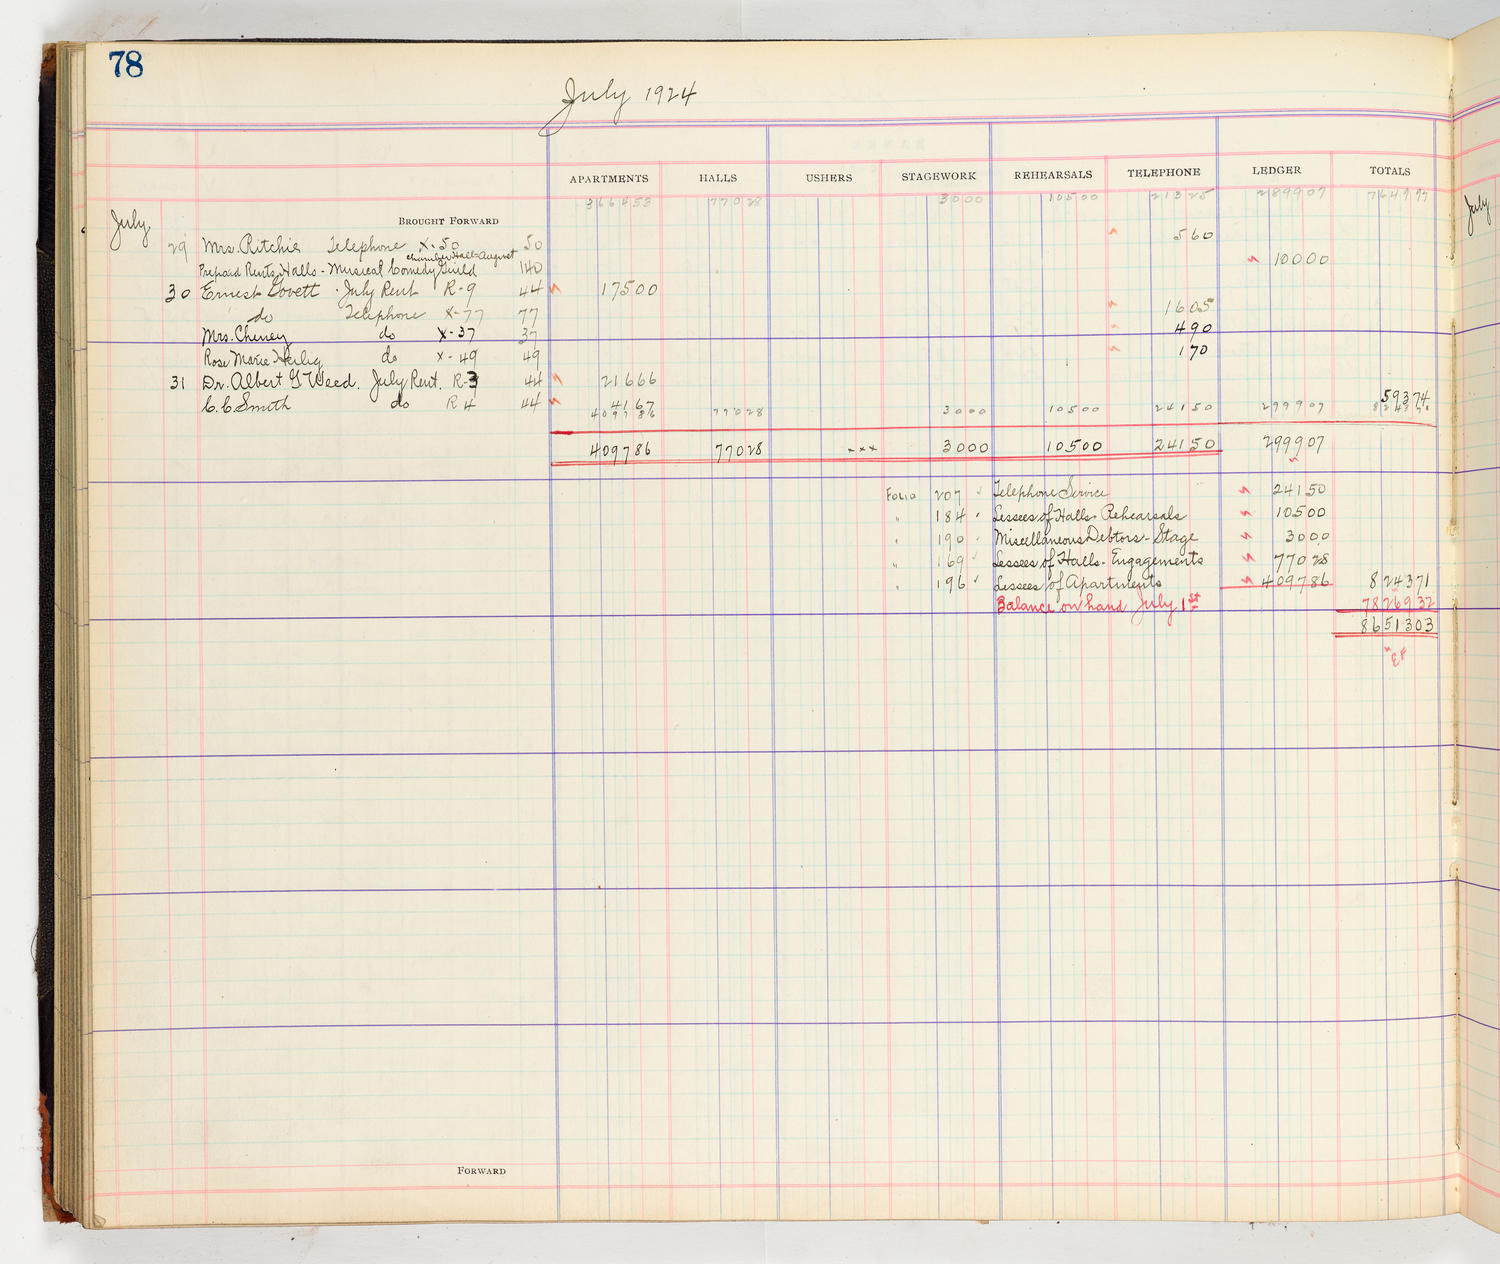 78
July 1924
APARTMENTS HALLS USHERS STAGEWORK REHEARSALS TELEPHONE LEDGER TOTALS
366453 77028 3000 10500 21325 289907 764997
July BROUGHT FORWARD July
29 Mrs. Ritchie Telephone X-50 50 560
Chamber Hall=August
Prepaid Rents, Halls - Musical Comedy Guild 140 10000
30 Ernest Lovett July Rent R-9 44 17500
do Telephone X-77 77 1605
Mrs. Cheney do X-37 37 490
Rose Marie do X-49 49 170
31 Dr. Albert G Weed. July Rent. R-3 44 21666
C.C. Smith do R 4 44 4167 59374
409786 77028 3000 10500 24150 299907
409786 77028 xxx 3000 10500 24150 299907
Folio 207 Telephone Service 24150
" 184 Lessees of Halls - Rehearsals 10500
" 190 Miscellaneous Debtors - Stage 3000
" 169 Lessees of Halls - Engagements 77028
" 196 Lessees of Apartments 409786 824371
Balance on hand July 1st 7826932
8651303
EF
FORWARD